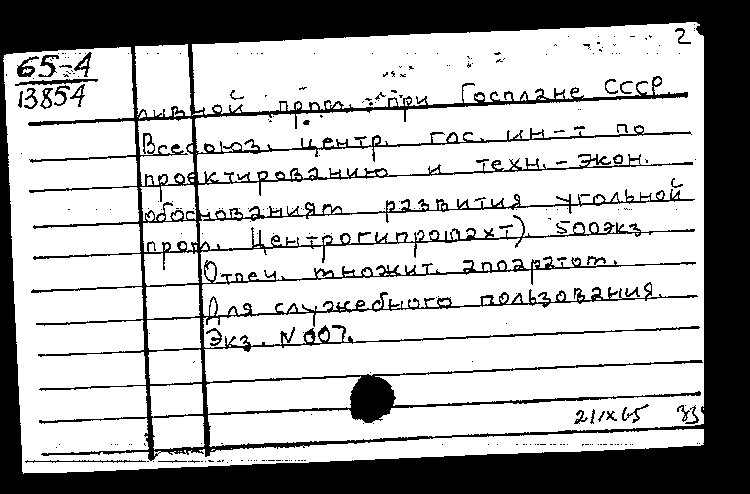 2
65-4
13854
ливной пром. при Госплане СССР.
Всесоюз. центр. гос. ин-т по
проектированию и техн.-экон.
обоснованиям развития угольной
пром. Центрогипрошахт). 500экз.
Отпеч. множит. аппаратом.
Для служебного пользования.
Экз. N 007.
21/IX 65